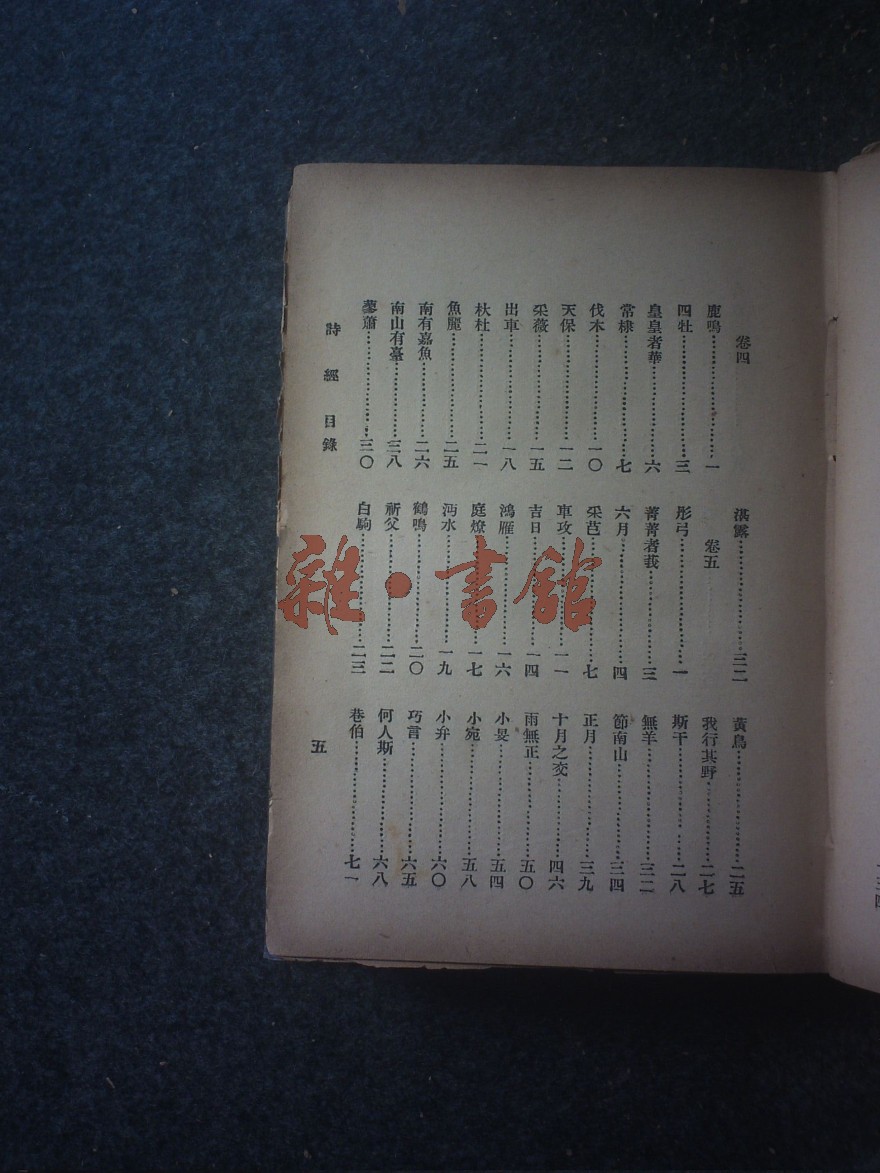 卷四
鹿鳴……一
四牡……三
皇皇者華……六
常棣……七
伐木……一〇
天保……一二
采薇……一五
出車……一八
杕杜……二一
魚麗……二五
南有嘉魚……二六
南山有臺……二八
蓼蕭……三〇
湛露……三二
卷五
彤弓……一
菁菁者莪……三
六月……四
采芑……七
車攻……一一
吉日……一四
鴻雁……一六
庭燎……一七
沔水……一九
鶴鳴……二〇
祈父……二二
白駒……二三
黃鳥……二五
我行其野……二七
斯干……二八
無羊……三二
節南山……三四
正月……三九
十月之交……四六
雨無正……五〇
小旻……五四
小宛……五八
小弁……六〇
巧言……六五
何人斯……六八
巷伯……七一
詩經目錄
五
雜·書館